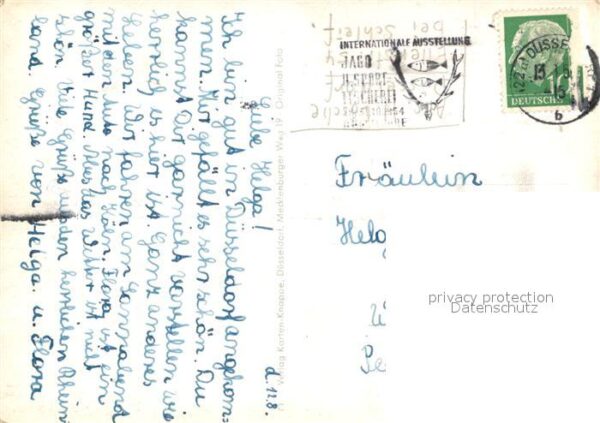 d. 12.8.
Liebe Helga!
Ich bin gut in Düsseldorf angekom=
men. Mir gefällt es sehr schön. Du
kannst Dir garnicht vorstellen wie
herrlich es hier ist. Ganz anderes
Leben. Wir fahren am Sonnabend
mit dem Auto nach Köln. Flora ist ein
großer Hund. Aber das Wetter ist nicht
schön. Viele Grüße aus dem herrlichen Rhein
land. Grüße von Helga. u. Flora
Verlag Karten-Knappe, Düsseldorf, Mecklenburger Weg 19 Original Foto
INTERNATIONALE AUSSTELLUNG
JAGD
U. SPORT-
FISCHEREI
1954
DÜSSE
13 8
b
DEUTSCHE
Fräulein
Helg
privacy protection
Datenschutz